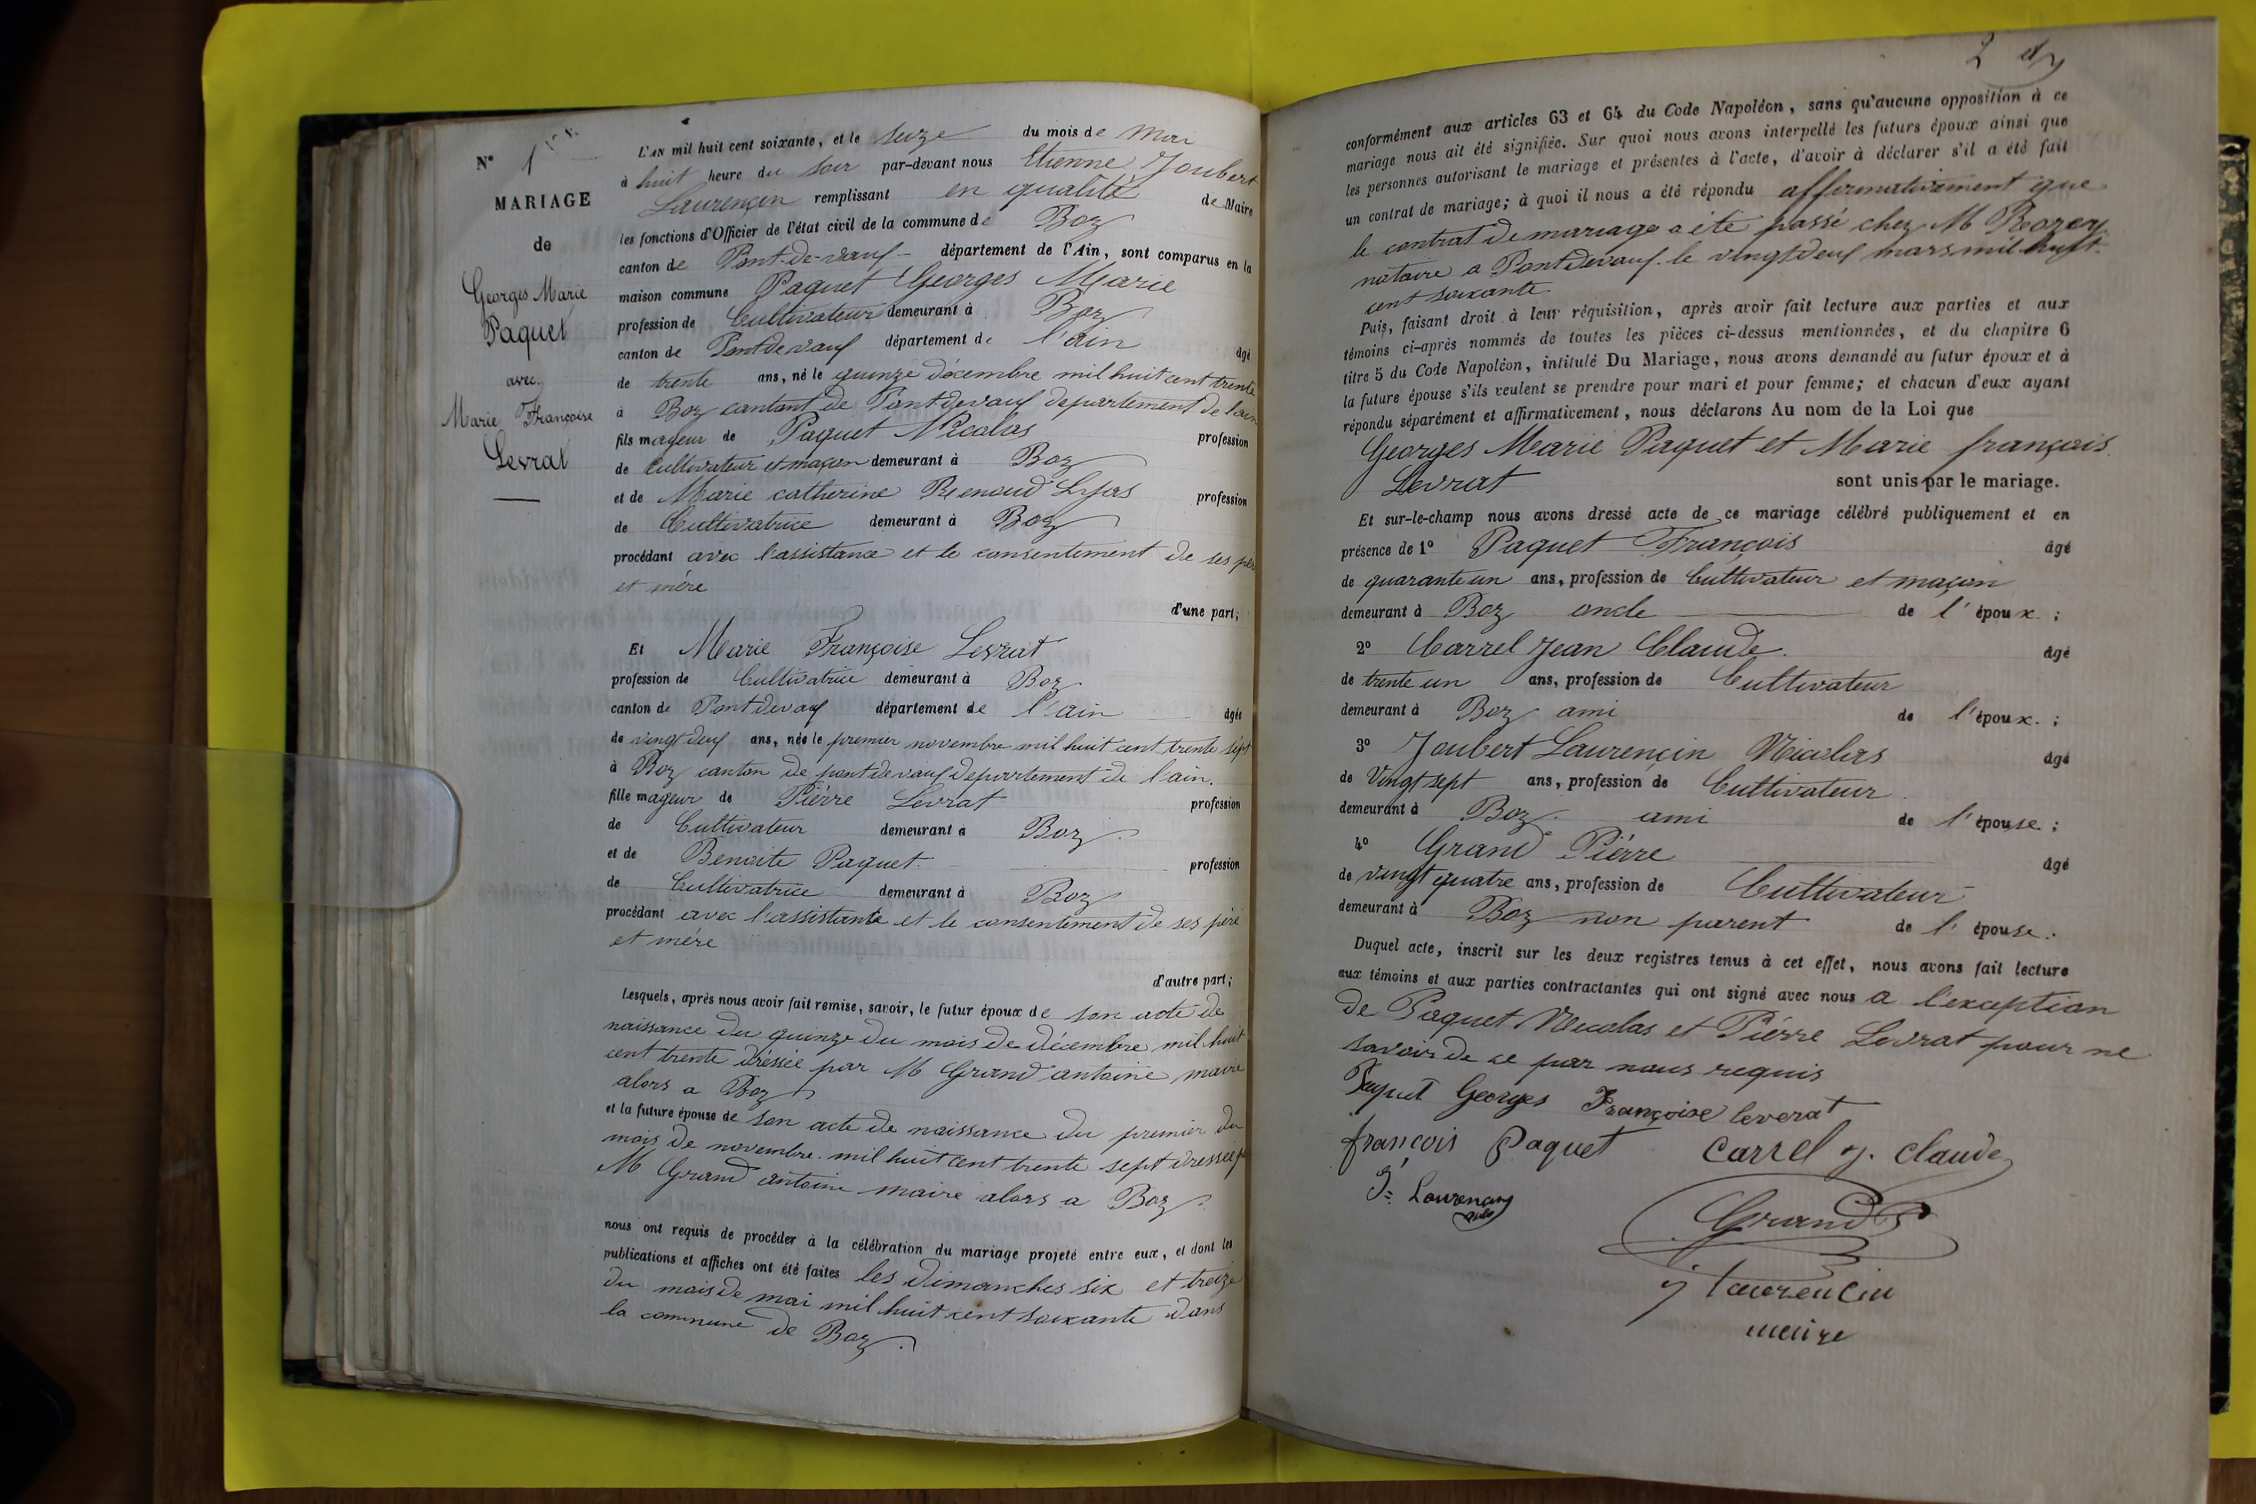 N° 1
MARIAGE
de
Georges Marie
Paquet
avec
Marie Françoise
Levrat
L'AN mil huit cent soixante, et le seize du mois de Mai
à huit heure du soir par-devant nous Etienne Joubert
Laurençin remplissant en qualité de Maire
les fonctions d'Officier de l'état civil de la commune de Boz
canton de Pont-de-vauf département de l'Ain, sont comparus en la
maison commune Paquet Georges Marie
profession de Cultivateur demeurant à Boz
canton de Pontdevauf département de l'ain âgé
de trente ans, né le quinze décembre mil huit cent trente
à Boz cantont de Pontdevauf departement de l'ain
fils mageur de Paquet Nicolas profession
de Cultivateur et maçon demeurant à Boz
et de Marie catherine Renoud Lyas profession
de Cultivatrice demeurant à Boz
procédant avec l'assistance et le consentement de ses père
et mère
d'une part;
Et Marie Françoise Levrat
profession de Cultivatrice demeurant à Boz
canton de Pontdevauf département de l'ain âgée
de vingt deuf ans, née le premier novembre mil huit cent trente sept
à Boz canton de pontdevauf departement de l'ain.
fille mageur de Piérre Levrat profession
de Cultivateur demeurant a Boz
et de Benoite Paquet profession
de Cultivatrice demeurant à Boz
procédant avec l'assistante et le consentement de ses père
et mère
d'autre part;
Lesquels, après nous avoir fait remise, savoir, le futur époux de son acte de
naissance du quinze du mois de décembre mil huit
cent trente dréssée par M Grand antoine maire
alors a Boz
et la future épouse de son acte de naissance du premier du
mois de novembre mil huit cent trente sept dressée p
M Grand antoine maire alors a Boz
nous ont requis de procéder à la célébration du mariage projeté entre eux, et dont les
publications et affiches ont été faites les dimanches six et treize
du mois de mai mil huit cent soixante dans
la commune de Boz.
2
conformément aux articles 63 et 64 du Code Napoléon, sans qu'aucune opposition à ce
mariage nous ait été signifiée. Sur quoi nous avons interpellé les futurs époux ainsi que
les personnes autorisant le mariage et présentes à l'acte, d'avoir à déclarer s'il a été fait
un contrat de mariage; à quoi il nous a été répondu affirmativement que
le contrat de mariage a été passé chez M
notaire a Pontdevauf. le vingtdeuf mars mil huit
cent soixante.
Puis, faisant droit à leur réquisition, après avoir fait lecture aux parties et aux
témoins ci-après nommés de toutes les pièces ci-dessus mentionnées, et du chapitre 6
titre 5 du Code Napoléon, intitulé Du Mariage, nous avons demandé au futur époux et à
la future épouse s'ils veulent se prendre pour mari et pour femme; et chacun d'eux ayant
répondu séparément et affirmativement, nous déclarons Au nom de la Loi que
Georges Marie Paquet et Marie françois
Levrat sont unis par le mariage.
Et sur-le-champ nous avons dressé acte de ce mariage célébré publiquement et en
présence de 1° Paquet François âgé
de quarante un ans, profession de Cultivateur et maçon
demeurant à Boz oncle de l'époux;
2° Carrel Jean Claude. âgé
de trente un ans, profession de Cultivateur
demeurant à Boz ami de l'époux.;
3° Joubert Laurençin Nicolas âgé
de Vingt sept ans, profession de Cultivateur
demeurant à Boz ami de l'épouse;
4° Grand Piérre âgé
de vingt quatre ans, profession de Cultivateur
demeurant à Boz non parent de l'épouse.
Duquel acte, inscrit sur les deux registres tenus à cet effet, nous avons fait lecture
aux témoins et aux parties contractantes qui ont signé avec nous a l'exception
de Paquet Nicolas et Piérre Levrat pour ne
savoir de ce par nous requis
Paquet Georges Françoise leverat
françois Paquet Carrel j. claude
Grand P
j laurencin
maire